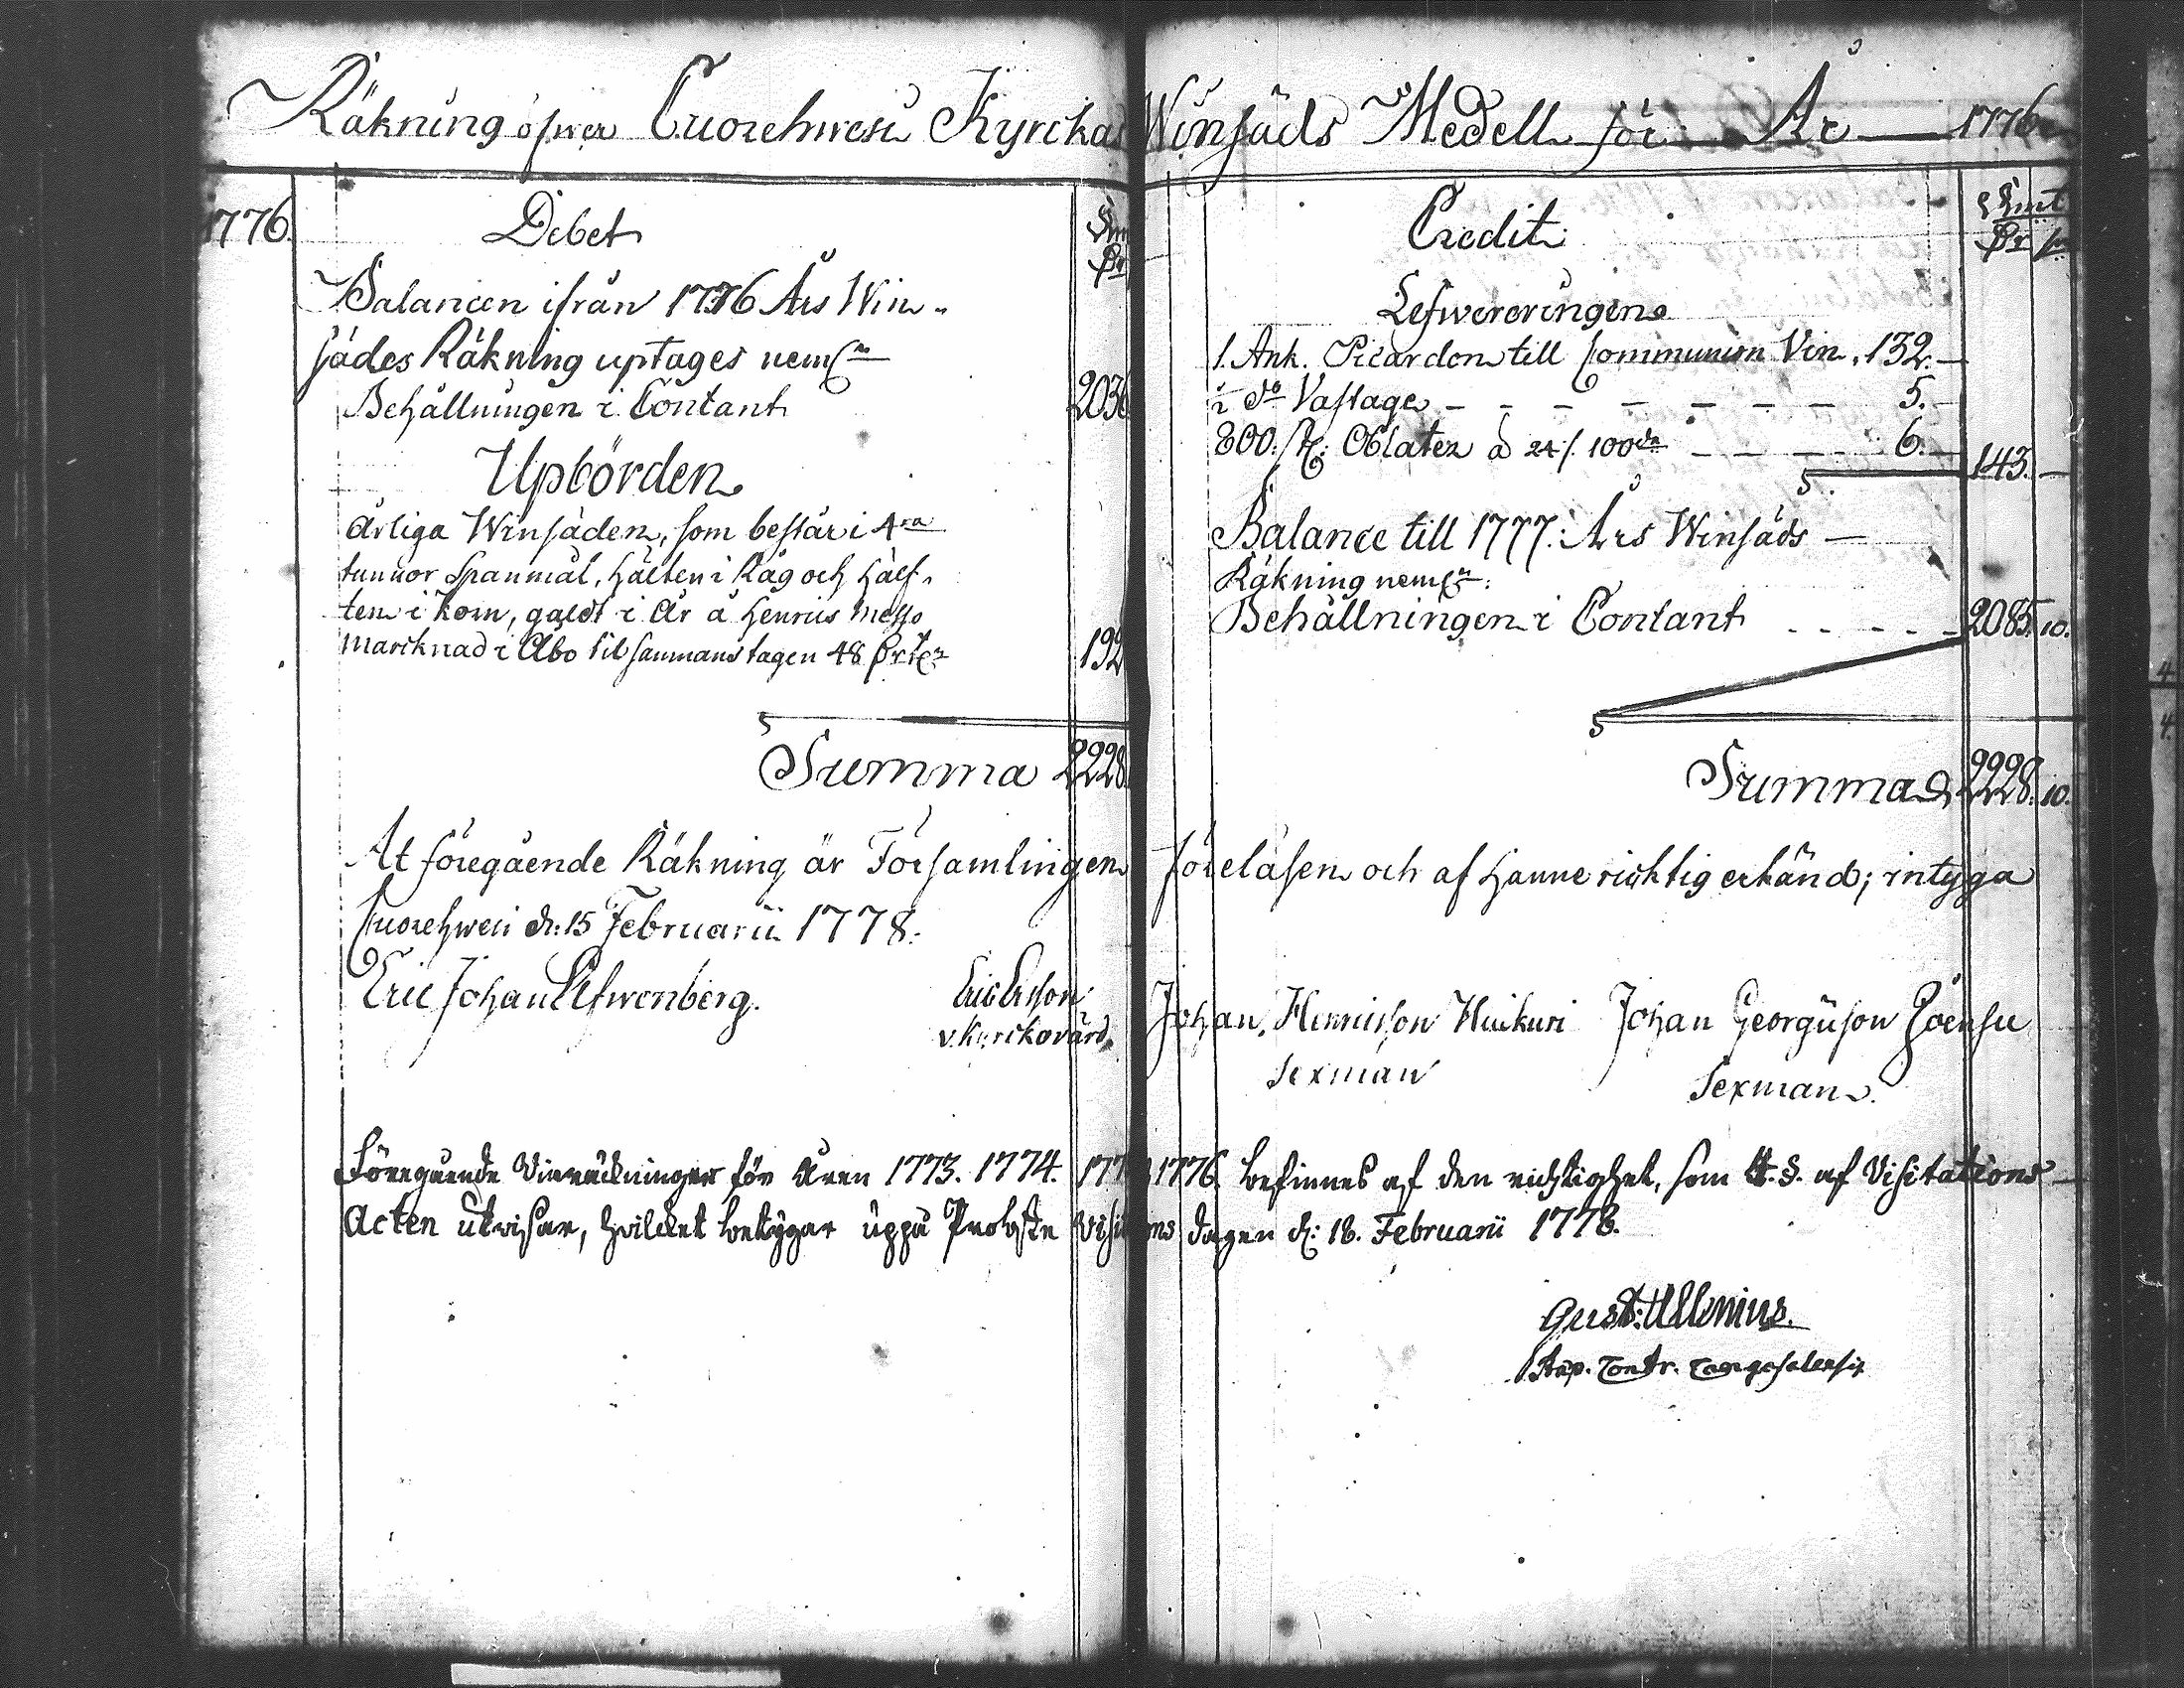 Räkning öfwer Cuorehwesi Kyrckas Winsäds Medell för År 1776
1776.
Debet
Balancen ifrån 1776 Års Win-
sädes Räkning uptages neml:n
Behållningen i Contant 2036
Upbörden
Årliga Winsäden, som består i 4ra
tunnor Spanmål, hälften i Råg och hälf-
ten i Korn, galdt i År å Henrics Messo
Marcknad i Åbo tilsammanstagen 48
192
Summa 2228.
Credit
Lefwereringen
1. Ank. Picardon till Communion Vin, 132. —
1 do Vastage — — — — — — — 5. —
800. st: Oblater à 24/. 100de — — — — 6. —
143. —
Balance till 1777. Års Winsäds —
Räkning neml:n:
Behållningen i Contant - - - - - 2085. 10.
Summa 2228. 10.
At föregående Räkning är Församlingen föreläsen och af Henne richtig erkänd; intyga
Cuorehwesi d: 15 Februarii 1778.
Eric Johan Lefwenberg. Eric Ersson Johan Henricsson Huikuri Johan Georgiison Joensu
v. Kyrckovärd. Sexman Sexman.
Föregående Vinräckningar för Åren 1773. 1774. 177 1776. befinnes af den richtighet, som 4. §. af Visitations
Acten utvisar, hvilcket betygar uppå Probste Visi ons dagen d: 18. Februarii 1778.
Gust: Allenius.
Præp. Contr. Cangasalensis